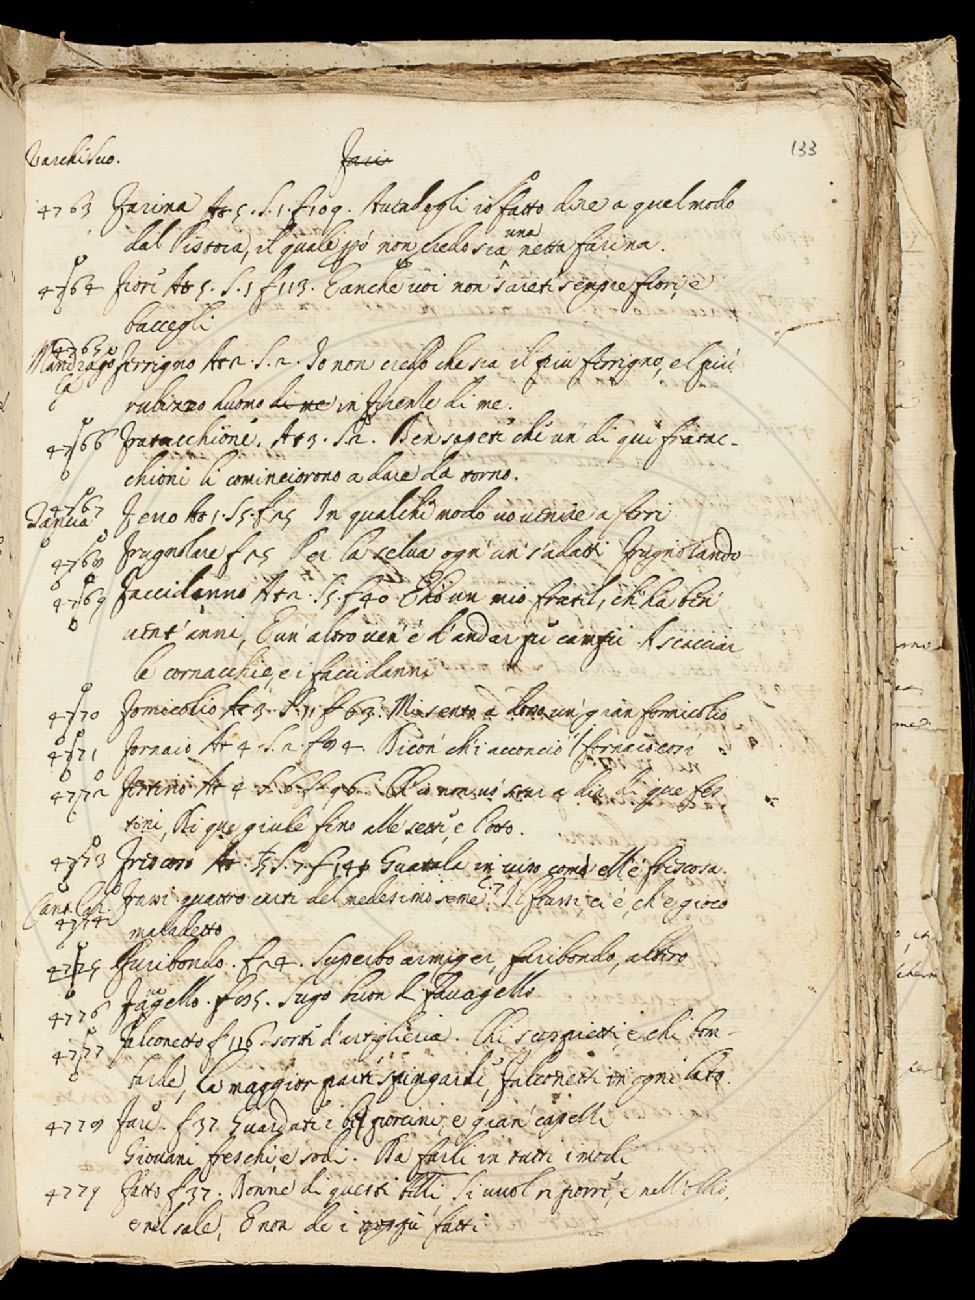 Varchi Suo. Faris 133
4763 Farina At. 5. S. 1. f. 109. Auendogli io fatto dire a quel modo
dal Pistoia, il quale però non credo sia una netta farina.
4764 Fiori At 5. S. 1 f 113. E anche voi non sareti sempre fiori, e
baccegli
4765 Mandragola Ferrigno At 2. S. 2. Io non credo che sia il più ferrigno, e l più
rubizzo duomo di me in firenze di me.
4766 Fratacchione. At 3. S 2. Ben sapete che un di que fratac-
chioni li cominciorono a dare da torno.
4767 Tancia Ferro At 1. S 5. f 25 In qualche modo vo venire a ferri
4768 Frugnolare f 25 Per la selua ogn' un s'adatti Frugnolando
4769 Faccidanno At 2. S. 5. f 40 Eho un mio fratel, ch' ha ben
vent' anni, E un' altro ven' è d' andar pe campi A scacciar
le cornacchie, e i faccidanni
4770 Fornicolio At 3. S. 11 f 63. Mi sento a dosso un gran fornicolio
4771 Fornaio At 4. S. 2. f 74 Picon' chi acconciò l fornaciocori
4772 Festino At 4. S. 6. f 96. Ch' io non vo star a dir di que fes
tini, Di que giulè fino alle sette, e l' otto.
4773 Frescoso At. 5. S. 7. f 141 Guatala in viso com' ell' è frescosa.
Cant. Carn. 4774 Farvi quattro carti del medesimo seme. Il farvi ci è, ch' è gioco
maladetto
4775 Furibondo. f 24. Superbo armiger, furibondo, altiro
4776 Fauagello. f 95. Sugo buon di fauagello
4777 Falconetto f 116. sorti d' artiglieria. Chi scoppietti, e chi bom-
barde, La maggior parte spingarde, Falconetti in ogni lato.
4778 Fare. f 37. Guardate i bei fiorcini, e gran' capelli
Giovani freschi, e sodi. Da farli in tutti i modi
4779 Fatto f 37. Donne di questi belli Si vuol ri porre, e nell' ollio,
e nel sale, E non de i troppi fatti